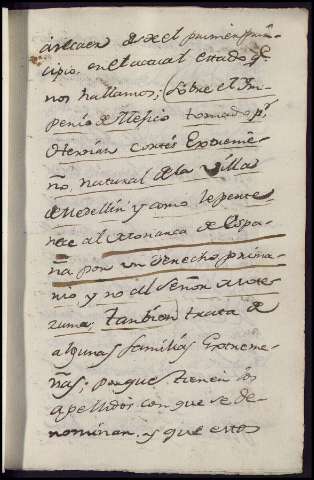 desde el primer prin-
cipio, en el actual estado q.e
nos hallamos; sobre el Im-
perio de Mejico tomado p.r
Hernán Cortés Extreme-
ño, natural de la Villa
de Medellin y como le perte-
nece al Monarca de Espa-
ña por un derecho prima-
rio, y no al Señor Mote-
zuma; también trata de
algunas familias Extreme-
ñas; porque tienen los
apellidos con que se de-
nominan. y que estos